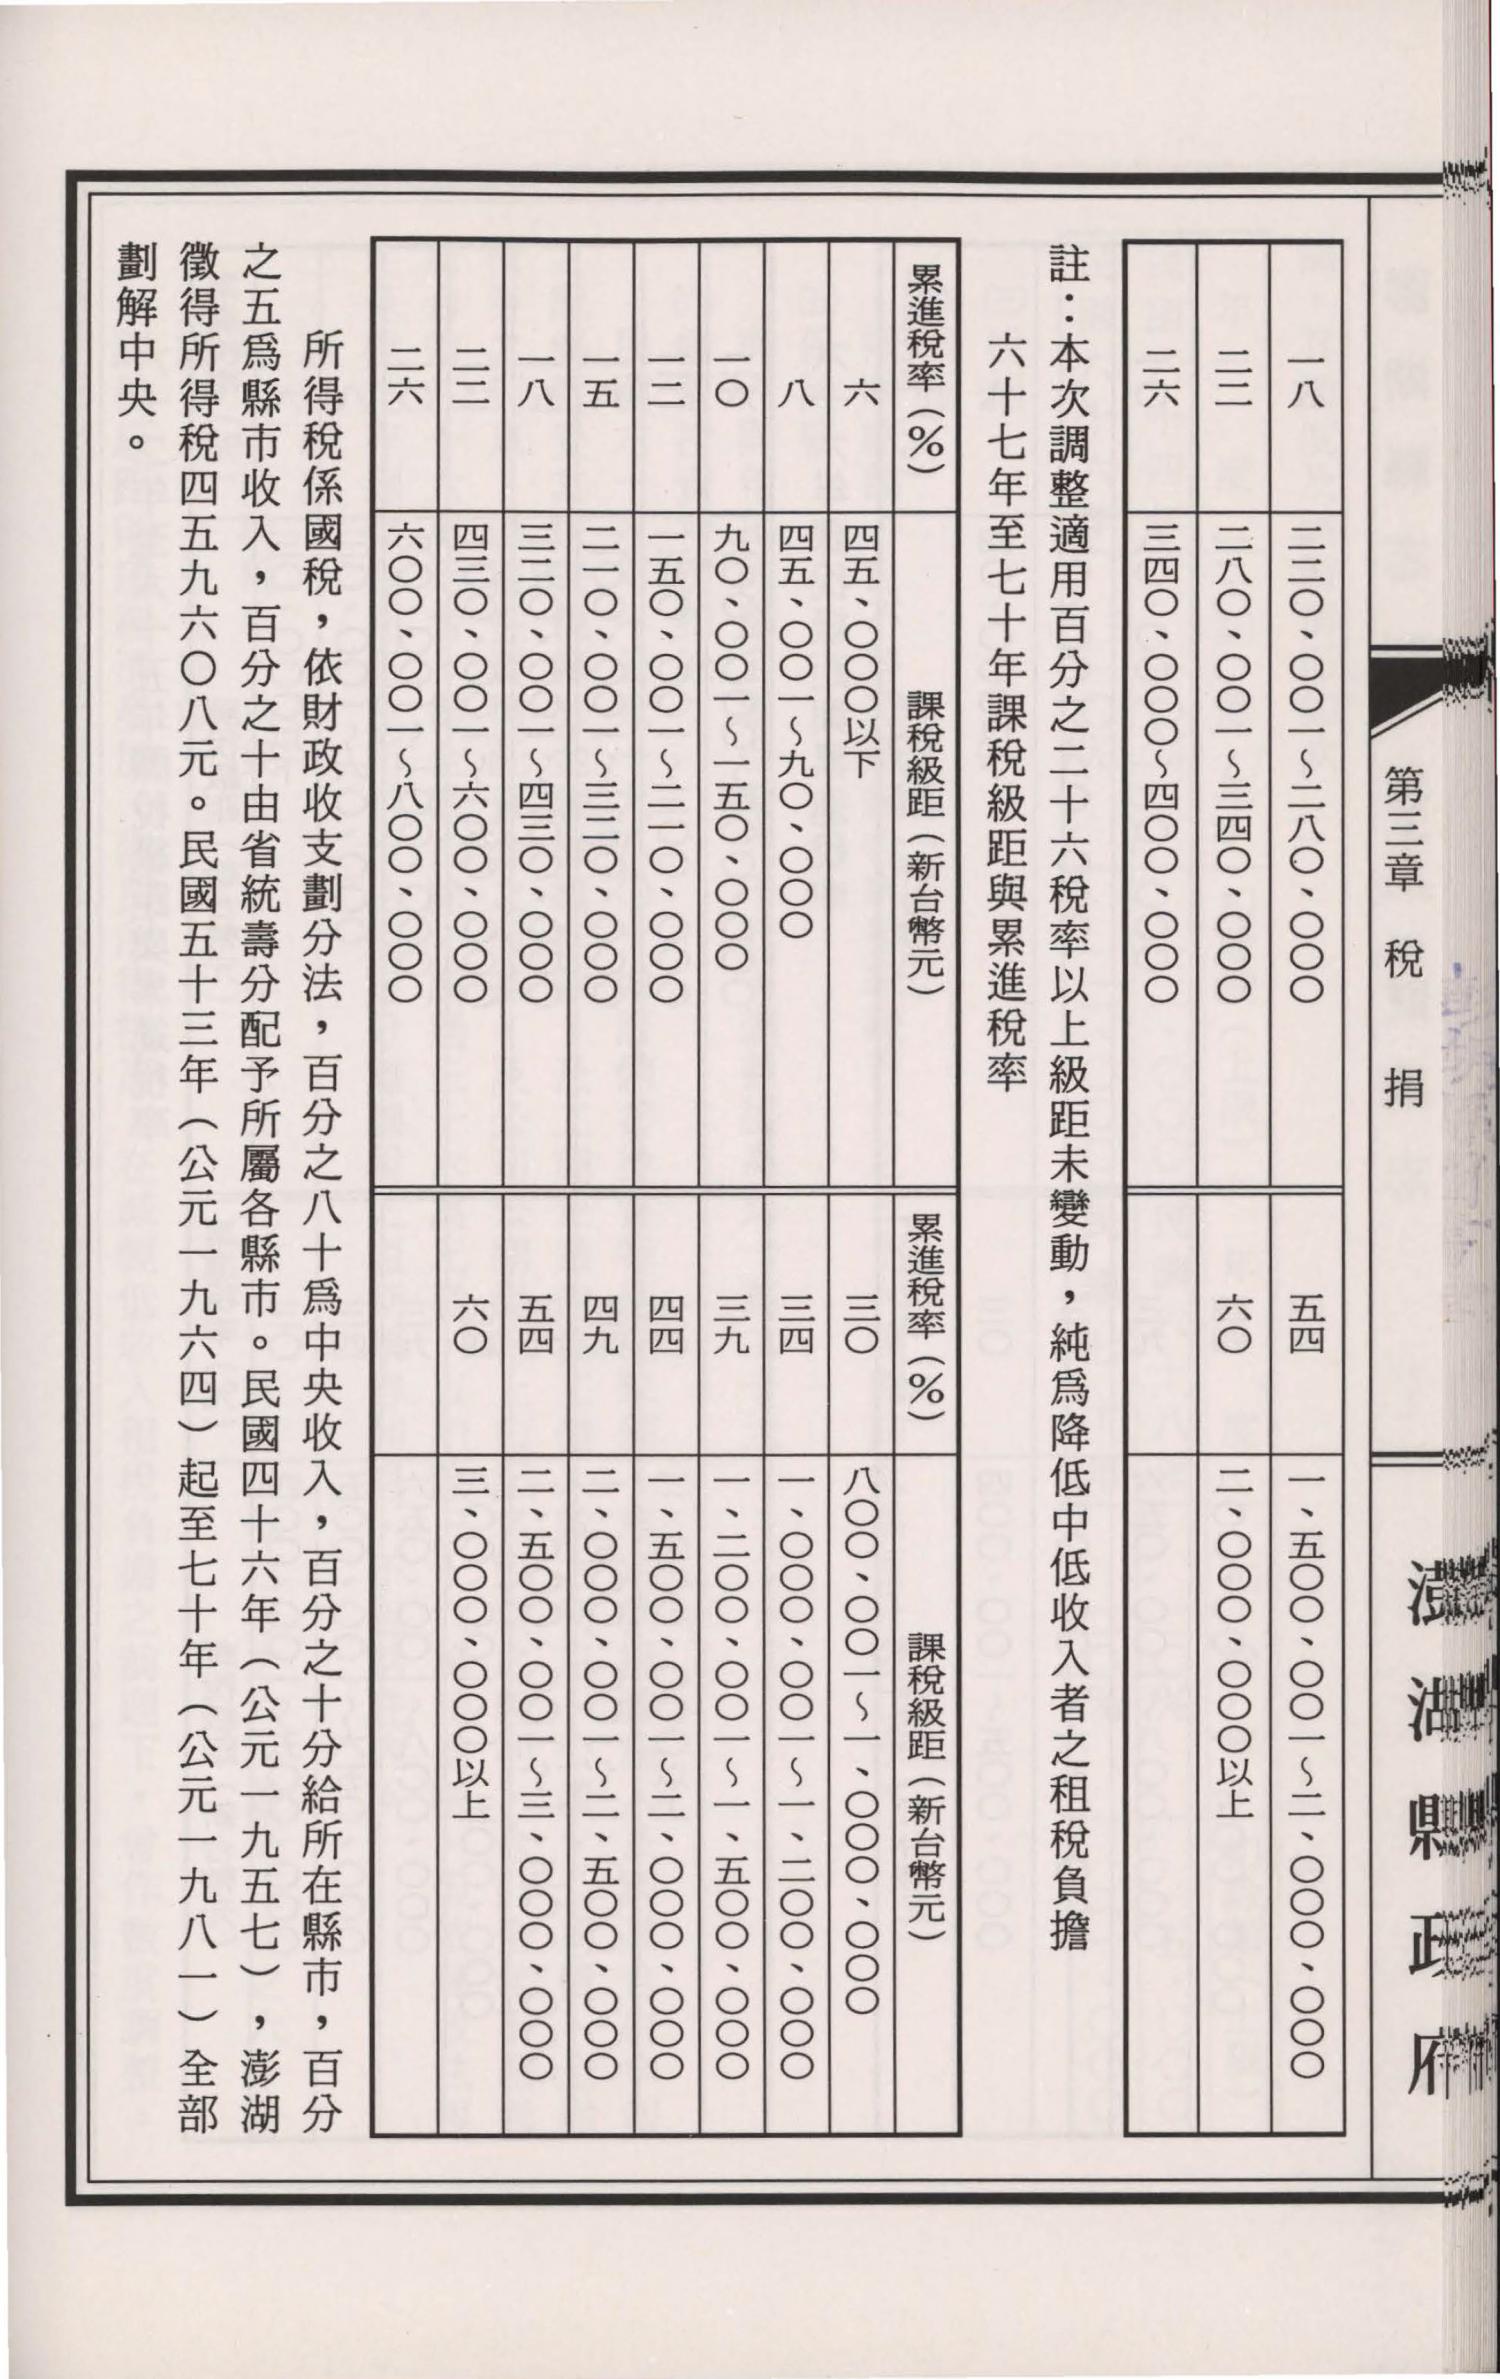 第三章　稅　捐
澎湖縣政府
一八
二二〇、〇〇一～二八〇、〇〇〇
五四
一、五〇〇、〇〇一～二、〇〇〇、〇〇〇
二二
二八〇、〇〇一～三四〇、〇〇〇
六〇
二、〇〇〇、〇〇〇以上
二六
三四〇、〇〇〇～四〇〇、〇〇〇
註：本次調整適用百分之二十六稅率以上級距未變動，純爲降低中低收入者之租稅負擔
六十七年至七十年課稅級距與累進稅率
累進稅率（%）
課稅級距（新台幣元）
累進稅率（%）
課稅級距（新台幣元）
六
四五、〇〇〇以下
三〇
八〇〇、〇〇一～一、〇〇〇、〇〇〇
八
四五、〇〇一～九〇、〇〇〇
三四
一、〇〇〇、〇〇一～一、二〇〇、〇〇〇
一〇
九〇、〇〇一～一五〇、〇〇〇
三九
一、二〇〇、〇〇一～一、五〇〇、〇〇〇
一二
一五〇、〇〇一～二一〇、〇〇〇
四四
一、五〇〇、〇〇一～二、〇〇〇、〇〇〇
一五
二一〇、〇〇一～三二〇、〇〇〇
四九
二、〇〇〇、〇〇一～二、五〇〇、〇〇〇
一八
三二〇、〇〇一～四三〇、〇〇〇
五四
二、五〇〇、〇〇一～三、〇〇〇、〇〇〇
二二
四三〇、〇〇一～六〇〇、〇〇〇
六〇
三、〇〇〇、〇〇〇以上
二六
六〇〇、〇〇一～八〇〇、〇〇〇
所得稅係國稅，依財政收支劃分法，百分之八十爲中央收入，百分之十分給所在縣市，百分
之五爲縣市收入，百分之十由省統壽分配予所屬各縣市。民國四十六年（公元一九五七），澎湖
徵得所得稅四五九六〇八元。民國五十三年（公元一九六四）起至七十年（公元一九八一）全部
劃解中央。